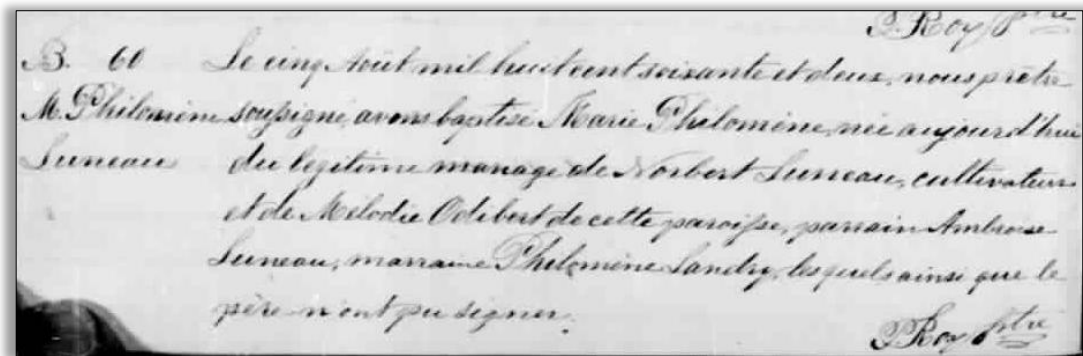 P. Roy Ptre
B. 60 Le cinq Août mil huit cent soixante et deux, nous prêtre
M. Philomène soussigné, avons baptisé Marie Philomène, née aujourd'hui
Luneau du légitime mariage de Norbert Luneau, cultivateur
et de Mélodie Odibert de cette paroisse, parrain Ambroise
Luneau, marraine Philomène Landry, lesquels ainsi que le
père n'ont pu signer.
P. Roy Ptre